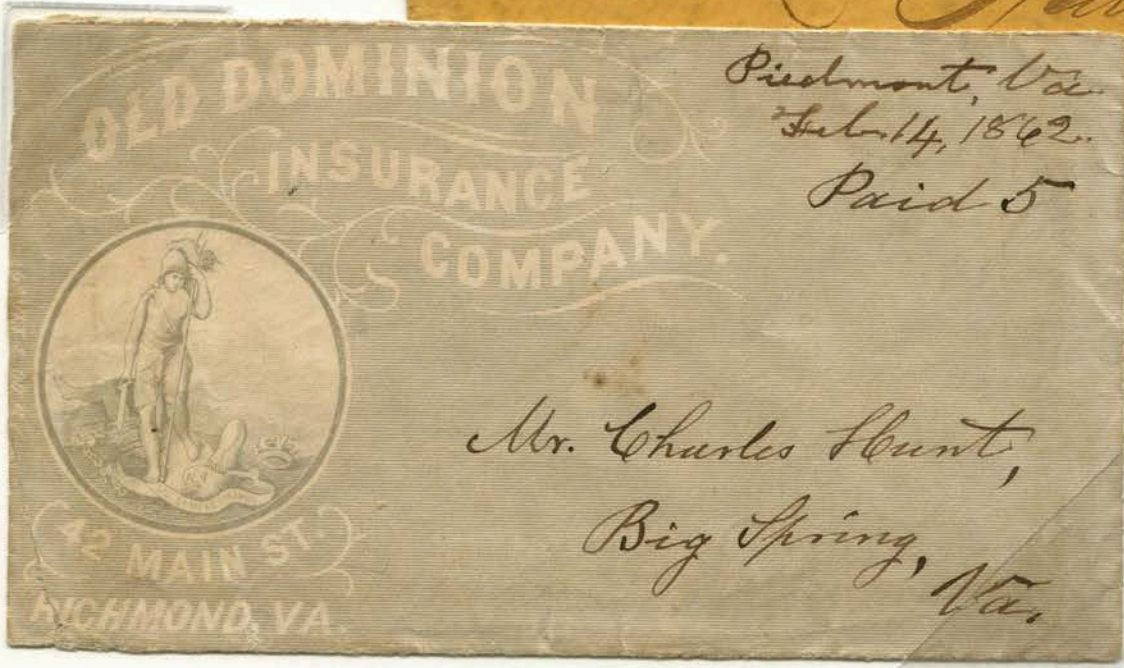 OLD DOMINION
INSURANCE
COMPANY.
42 MAIN ST.
RICHMOND, VA.
Piedmont, Va.
Feb. 14, 1862.
Paid 5
Mr. Charles Hunt,
Big Spring,
Va.